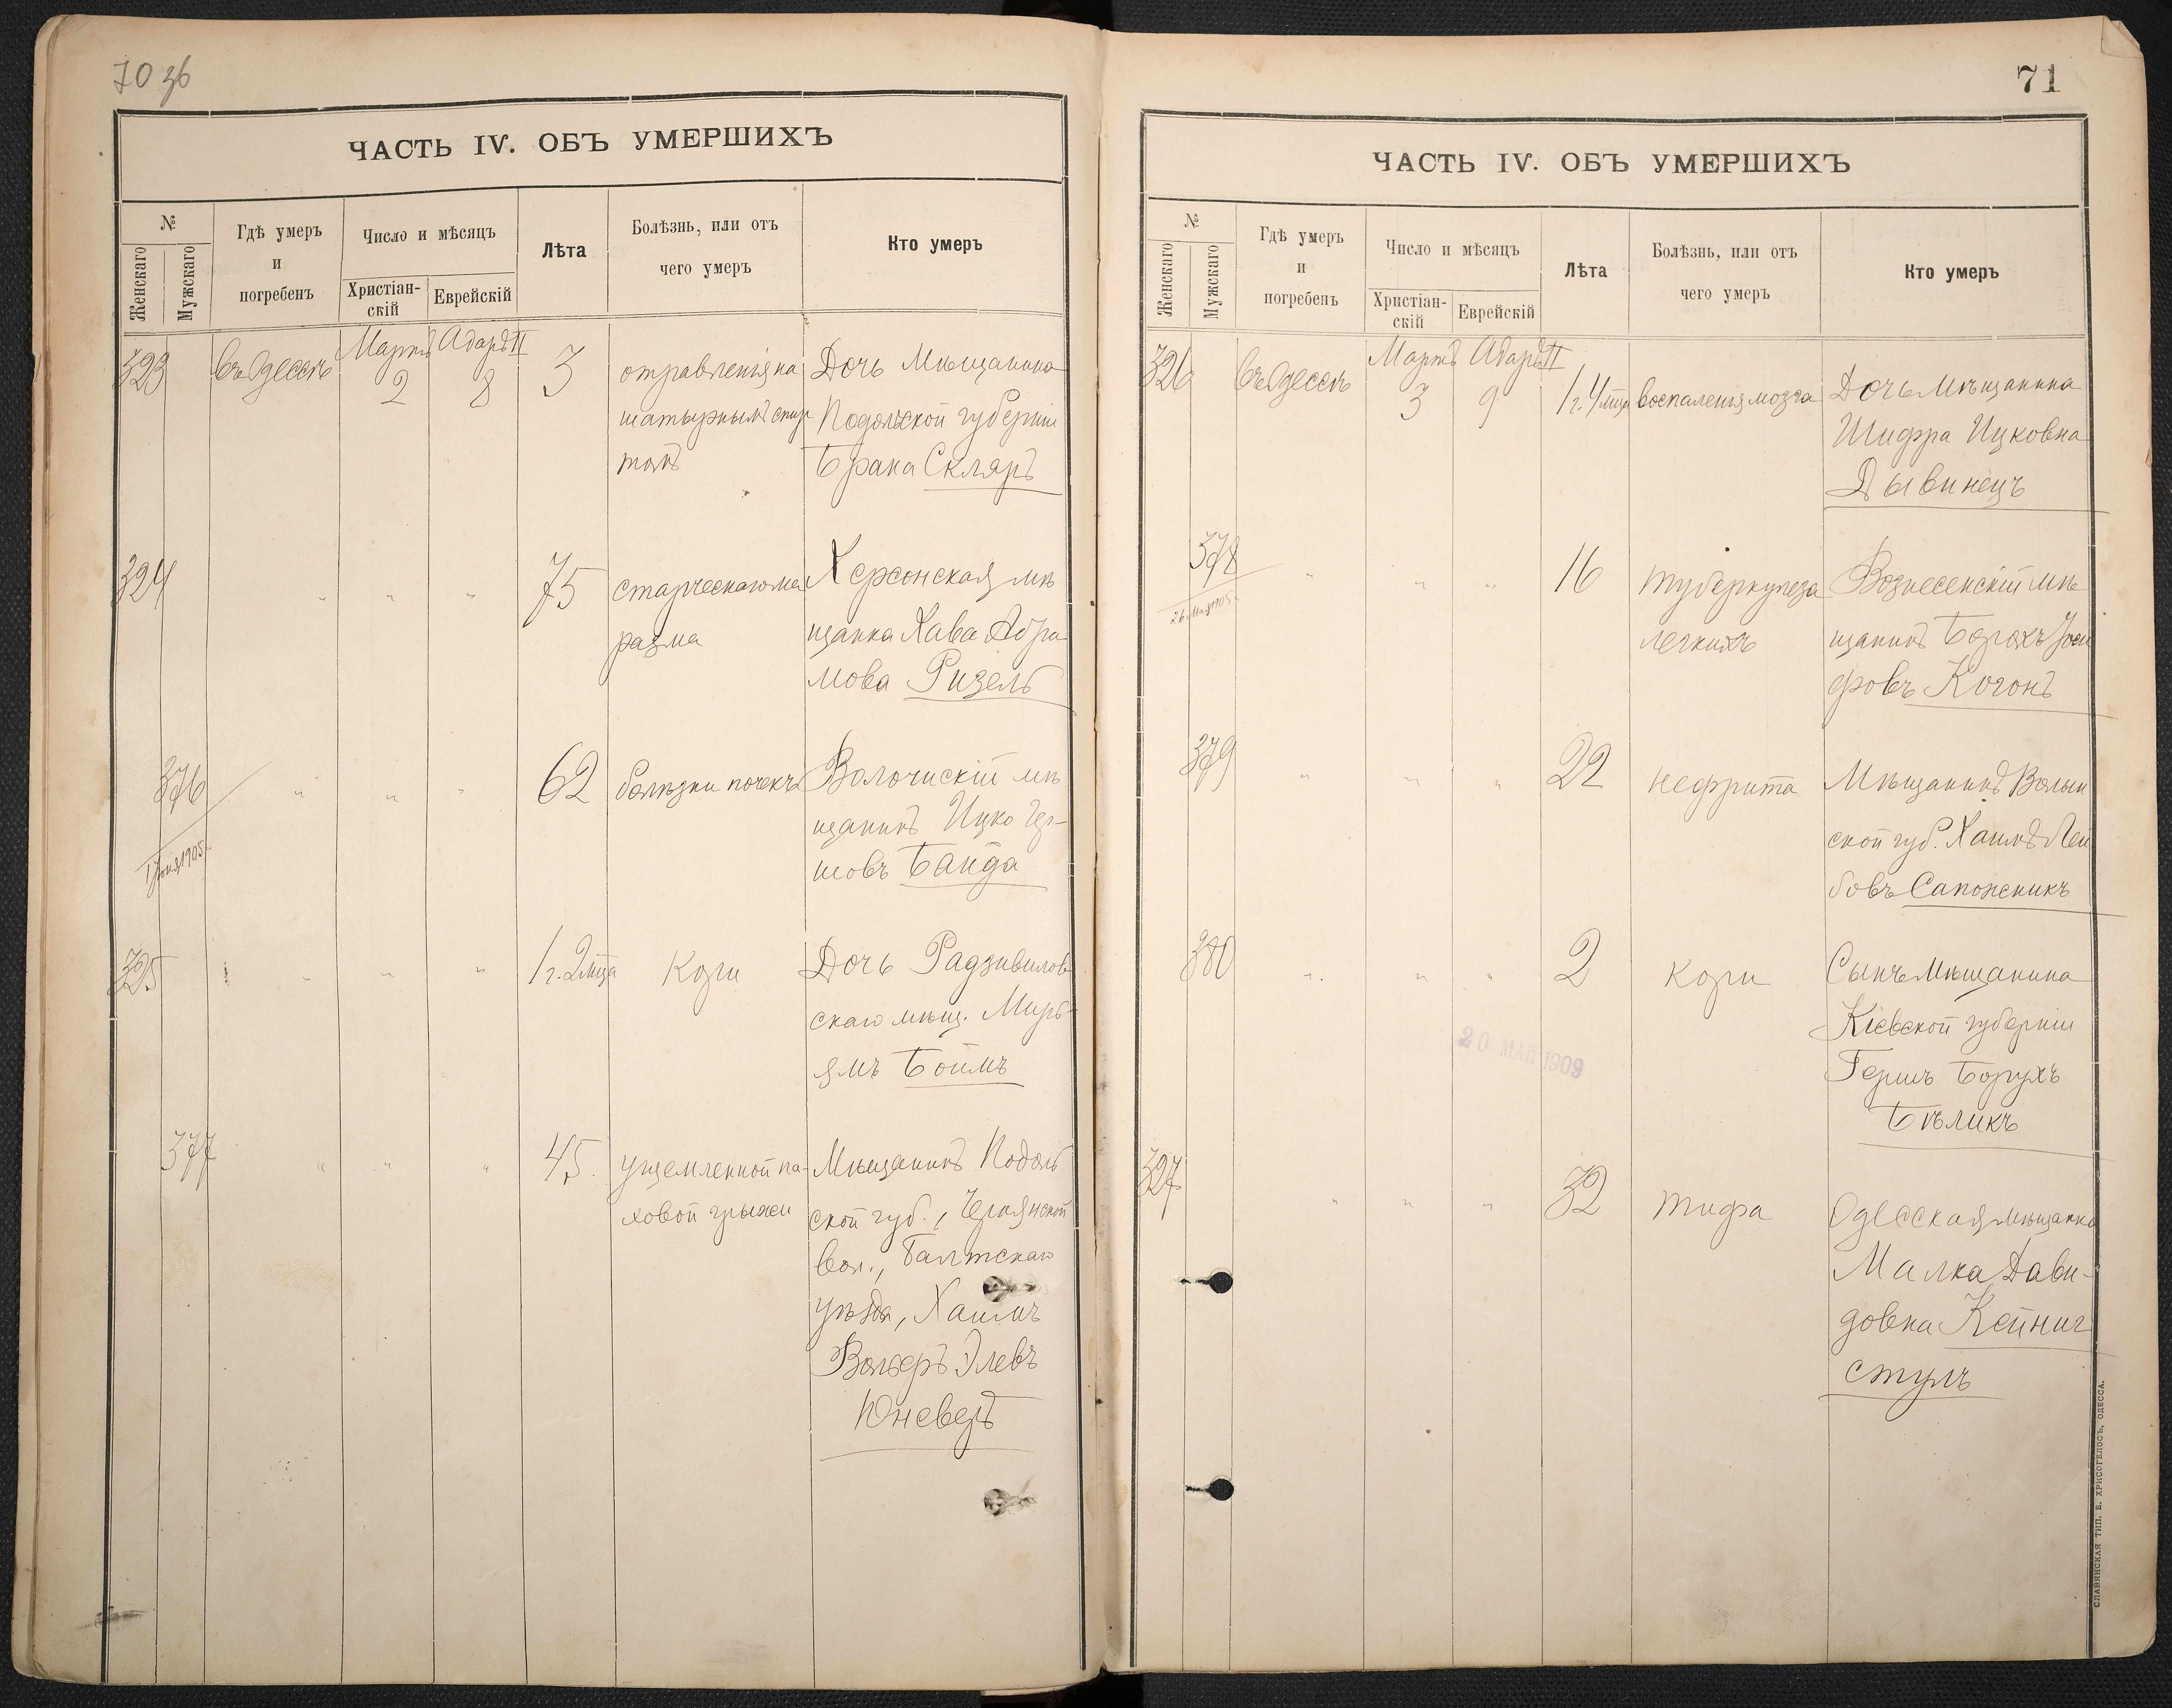 70 зб
ЧАСТЬ IV. ОБЪ УМЕРШИХЪ
№
Женскаго
Мужскаго
Гдѣ умеръ
и
погребенъ
Число и мѣсяцъ
Христіан-
скій
Еврейскій
Лѣта
Болѣзнь, или отъ
чего умеръ
Кто умеръ
Мартъ Адаръ II
323 въ Одессѣ 2 8 3
отравленія на
шатырнымъ спир
томъ
Дочь Мѣщанина
Подольской губерніи
Брана Скляръ
324 " " " 75
старческаго ма
разма
Херсонская мѣ
щанка Хава Абра
мова Ризель
376 " " " 62
болѣзни почекъ
Волочискій мѣ
щанинъ Ицко Гер-
шовъ Байда
1 Юня 1905
325 " " " 1 г. 2 мца
Кори
Дочь Радзивилов
скаго мѣщ. Мирь-
ямъ Боймъ
377 " " " 45
ущемленной па-
ховой грыжи
Мѣщанинъ Подоль
ской губ., Чернянской
вол., Балтскаго
уѣзда, Хаимъ
Вольфъ Элевъ
71
ЧАСТЬ IV. ОБЪ УМЕРШИХЪ
№
Женскаго
Мужскаго
Гдѣ умеръ
и
погребенъ
Число и мѣсяцъ
Христіан-
скій
Еврейскій
Лѣта
Болѣзнь, или отъ
чего умеръ
Кто умеръ
Мартъ Адаръ II
326 въ Одессѣ 3 9 1 г. 4 мца
воспаленія мозга
Дочь Мѣщанина
Шифра Ицковна
Дывинецъ
378 " " " 16
26 Мая 1905
туберкулеза
легкихъ
Вознесенскій мѣ
щанинъ Борохъ Іоси
фовъ Когонъ
379 " " " 22
нефрита
Мѣщанинъ Волын
ской губ. Хаимъ Лей
бовъ Сапожникъ
380 " " " 2
кори
Сынъ Мѣщанина
Кіевской губерніи
Гершъ Борухъ
Бѣликъ
20 МАЕ 1909
327 " " " 32
тифа
Одесская мѣщанка
Малка Дави-
довна Кейниг
стулъ
СЛАВЯНСКАЯ ТИП. Е. ХРИСОГЕЛОСЪ, ОДЕССА.